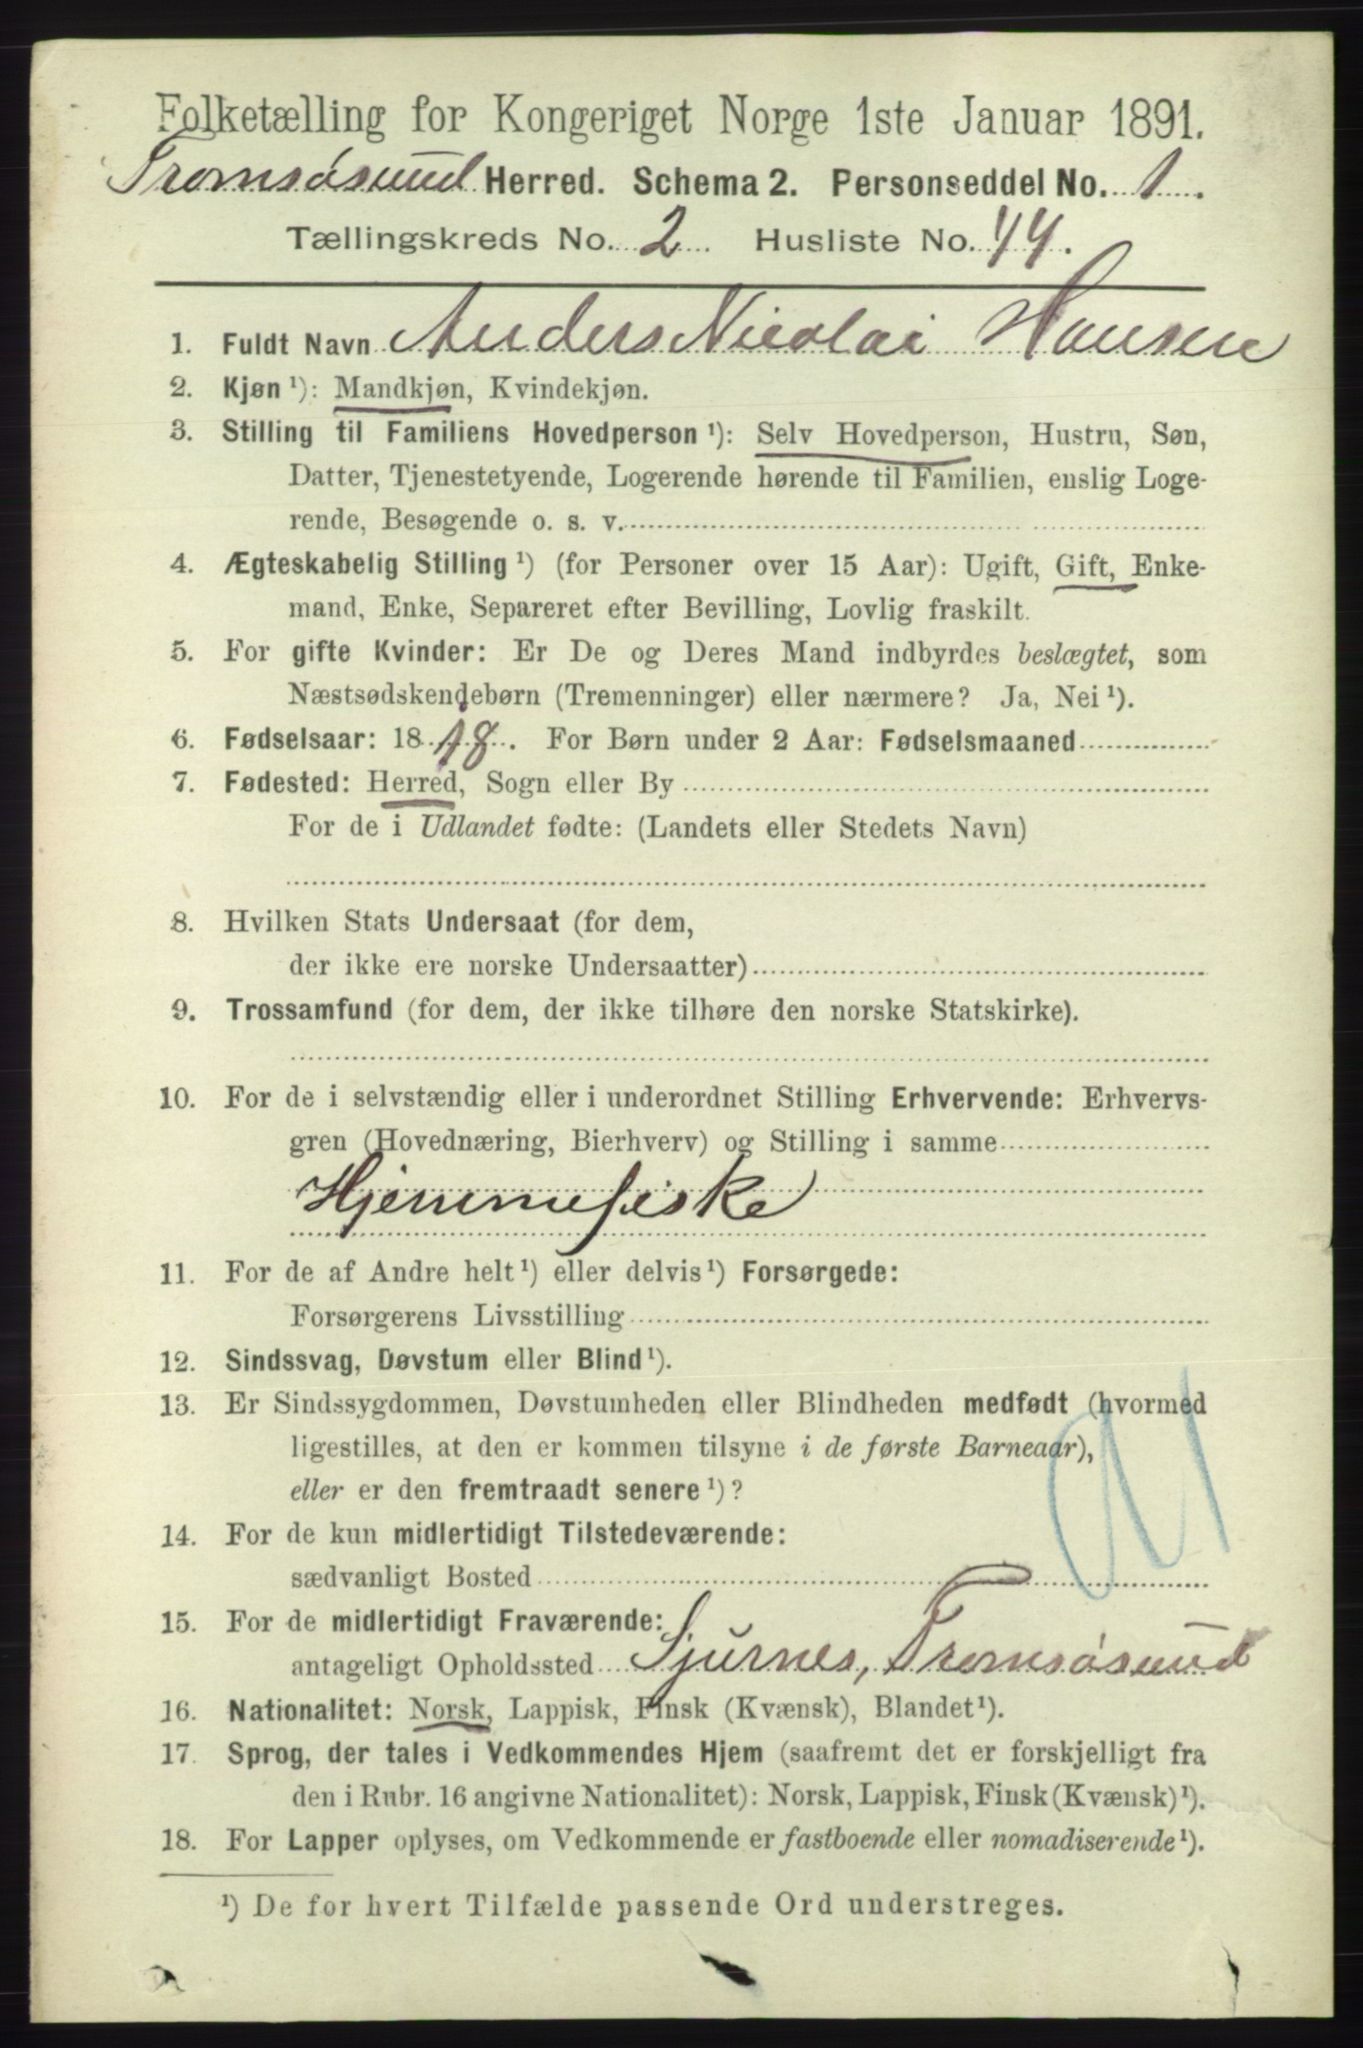 Folketælling for Kongeriget Norge 1ste Januar 1891.
Tromsøsund Herred. Schema 2. Personseddel No. 1.
Tællingskreds No. 2 Husliste No. 44.
1. Fuldt Navn Anders Nicolai Hansen
2. Kjøn ¹): Mandkjøn, Kvindekjøn.
3. Stilling til Familiens Hovedperson ¹): Selv Hovedperson, Hustru, Søn,
Datter, Tjenestetyende, Logerende hørende til Familien, enslig Loge-
rende, Besøgende o. s. v.
4. Ægteskabelig Stilling ¹) (for Personer over 15 Aar): Ugift, Gift, Enke-
mand, Enke, Separeret efter Bevilling, Lovlig fraskilt.
5. For gifte Kvinder: Er De og Deres Mand indbyrdes beslægtet, som
Næstsødskendebørn (Tremenninger) eller nærmere? Ja, Nei ¹).
6. Fødselsaar: 18 18. For Børn under 2 Aar: Fødselsmaaned
7. Fødested: Herred, Sogn eller By
For de i Udlandet fødte: (Landets eller Stedets Navn)
8. Hvilken Stats Undersaat (for dem,
der ikke ere norske Undersaatter)
9. Trossamfund (for dem, der ikke tilhøre den norske Statskirke).
10. For de i selvstændig eller i underordnet Stilling Erhvervende: Erhvervs-
gren (Hovednæring, Bierhverv) og Stilling i samme
Hjemmefiske
11. For de af Andre helt ¹) eller delvis ¹) Forsørgede:
Forsørgerens Livsstilling
12. Sindssvag, Døvstum eller Blind ¹).
13. Er Sindssygdommen, Døvstumheden eller Blindheden medfødt (hvormed
ligestilles, at den er kommen tilsyne i de første Barneaar),
eller er den fremtraadt senere ¹)?
14. For de kun midlertidigt Tilstedeværende:
sædvanligt Bosted
15. For de midlertidigt Fraværende:
antageligt Opholdssted Sjurnes, Tromsøsund
16. Nationalitet: Norsk, Lappisk, Finsk (Kvænsk), Blandet ¹).
17. Sprog, der tales i Vedkommendes Hjem (saafremt det er forskjelligt fra
den i Rubr. 16 angivne Nationalitet): Norsk, Lappisk, Finsk (Kvænsk) ¹).
18. For Lapper oplyses, om Vedkommende er fastboende eller nomadiserende ¹).
¹) De for hvert Tilfælde passende Ord understreges.